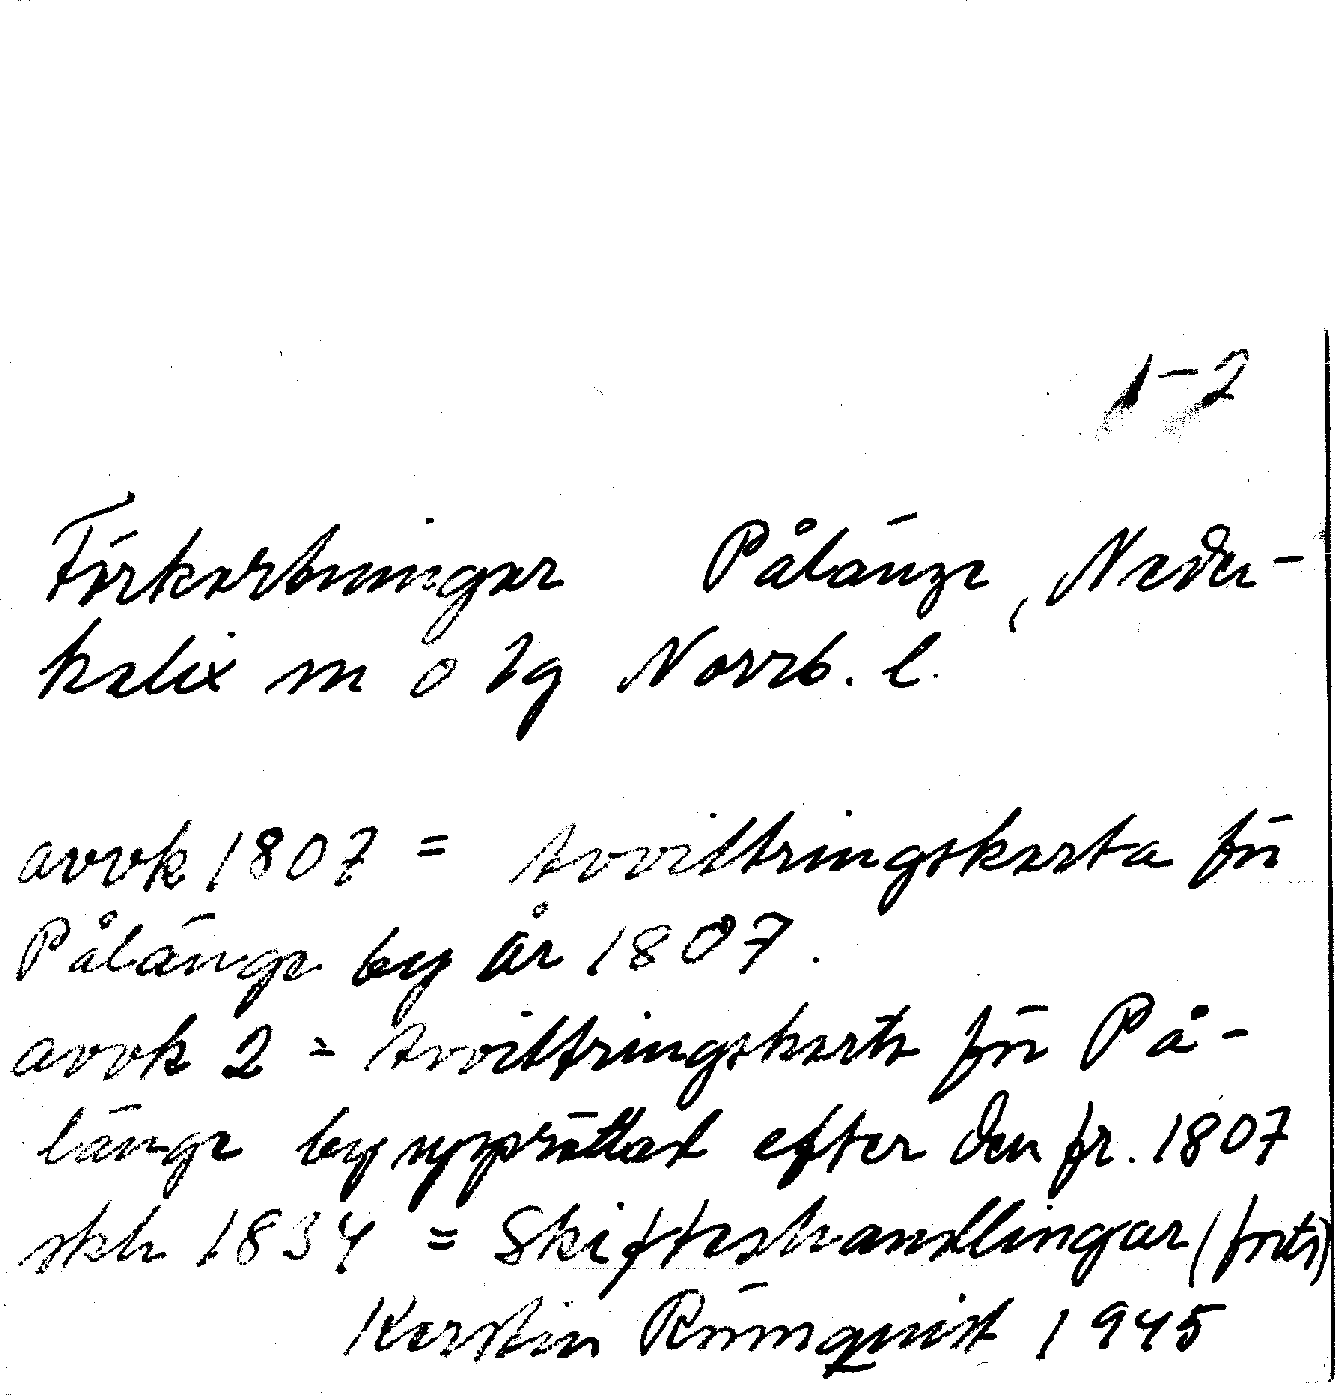 1-2
Förkortningar Pålänge, Neder-
kalix sn o tg Norrb. l.
avvk 1807 = Avvittringskarta för
Pålänge by år 1807.
avvk 2 = Avvittringskarta för På-
länge by upprättad efter den fr. 1807
skh 1834 = Skifteshandlingar (forts)
Kerstin Rönnquist 1945